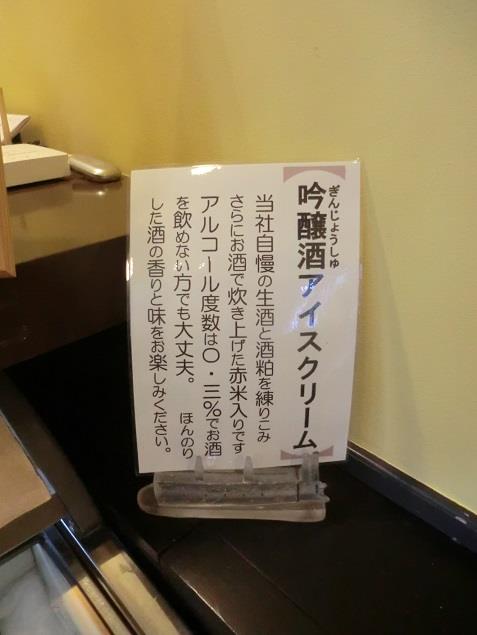 【吟醸酒アイスクリーム】
ぎんじょうしゅ
当社自慢の生酒と酒粕を練りこみ
さらにお酒で炊き上げた赤米入りです
アルコール度数は〇・三%でお酒
を飲めない方でも大丈夫。 ほんのり
した酒の香りと味をお楽しみください。